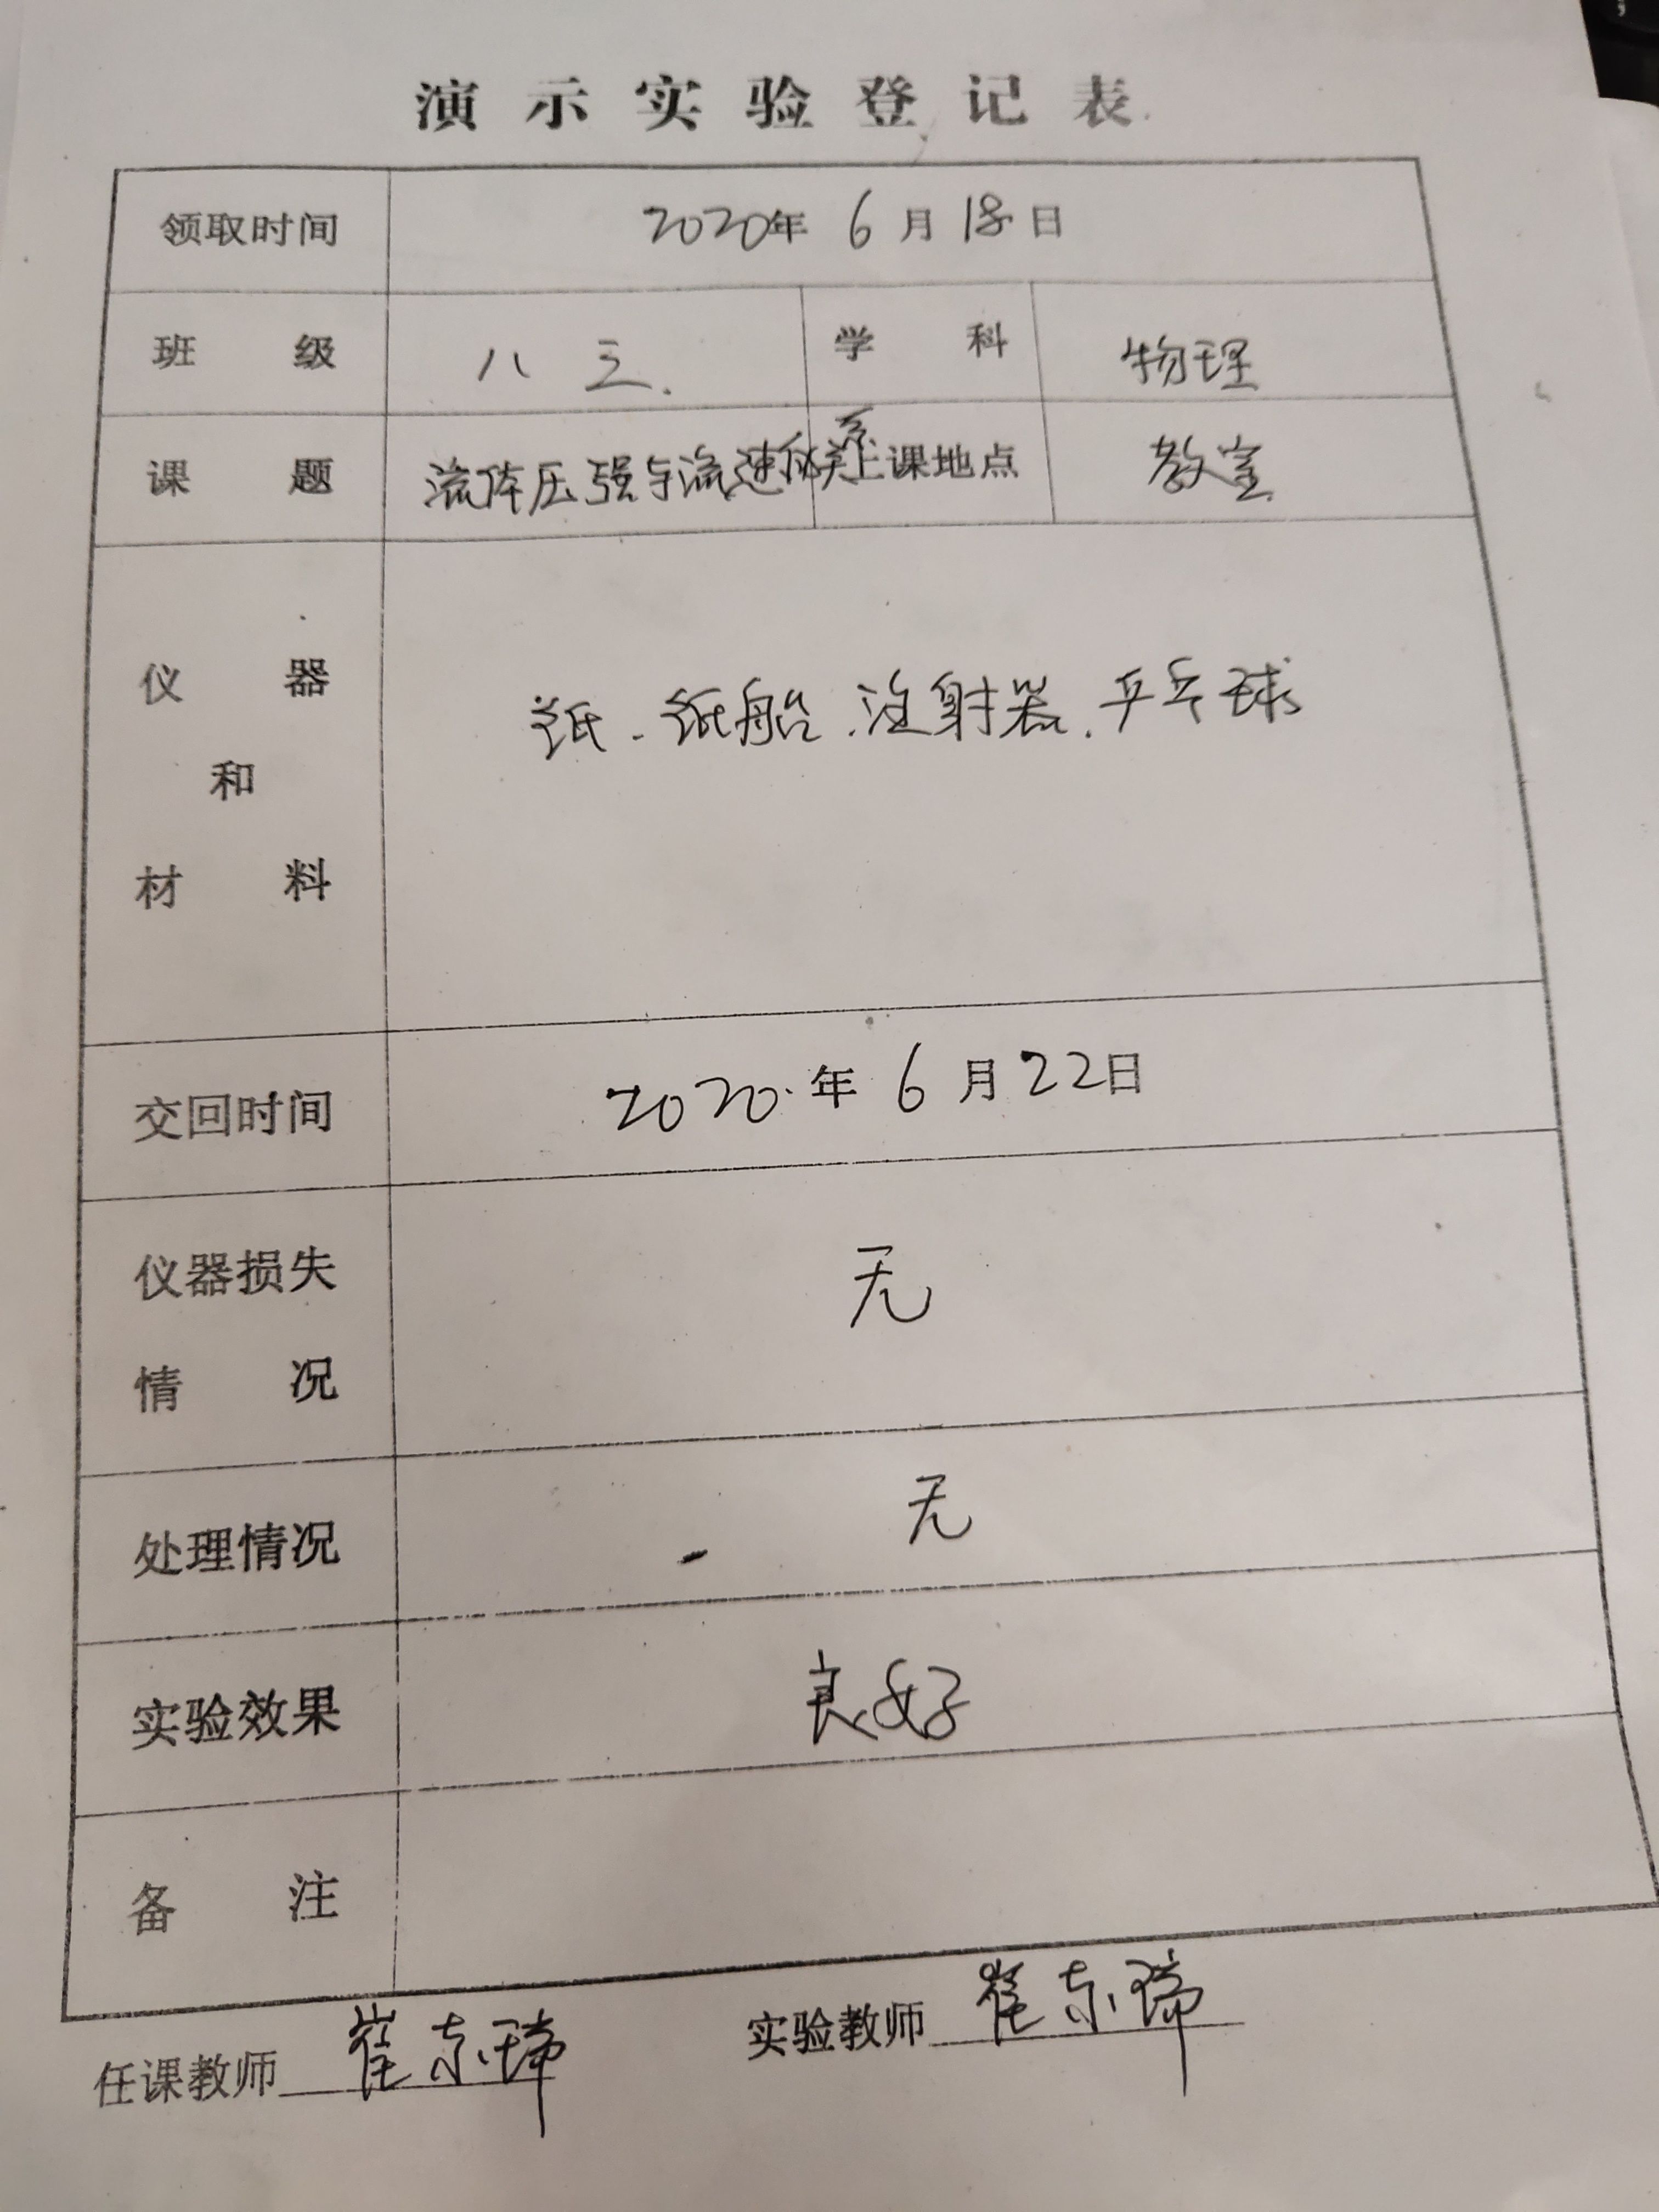 演示实验登记表
领取时间 2020年 6月18日
班级 八 三. 学科 物理
课题 流体压强与流速的关系 上课地点 教室
仪器和材料 纸、纸船、注射器、乒乓球
交回时间 2020.年 6月22日
仪器损失情况 无
处理情况 无
实验效果 良好
备注
任课教师 崔东 实验教师 崔东